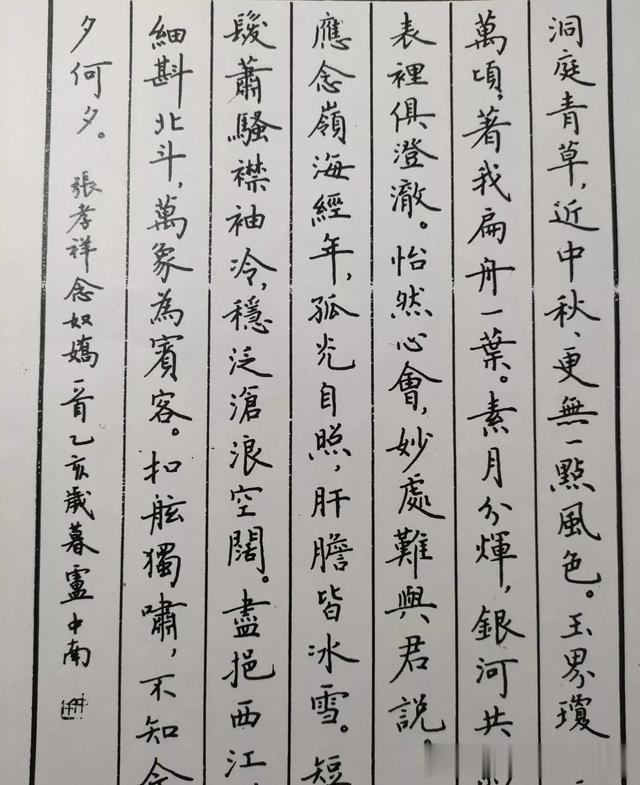 洞庭青草,近中秋、更無一點風色。玉界瓊
萬頃,著我扁舟一葉。素月分煇,銀河共
表裡俱澄澈。怡然心會,妙處難與君說。
應念嶺海經年,孤光自照,肝膽皆冰雪。短
髮蕭騷襟袖冷,穩泛滄浪空闊。盡挹西江,
細斟北斗,萬象為賓客。扣舷獨嘯,不知今
夕何夕。張孝祥念奴嬌一首乙亥歲暮盧中南